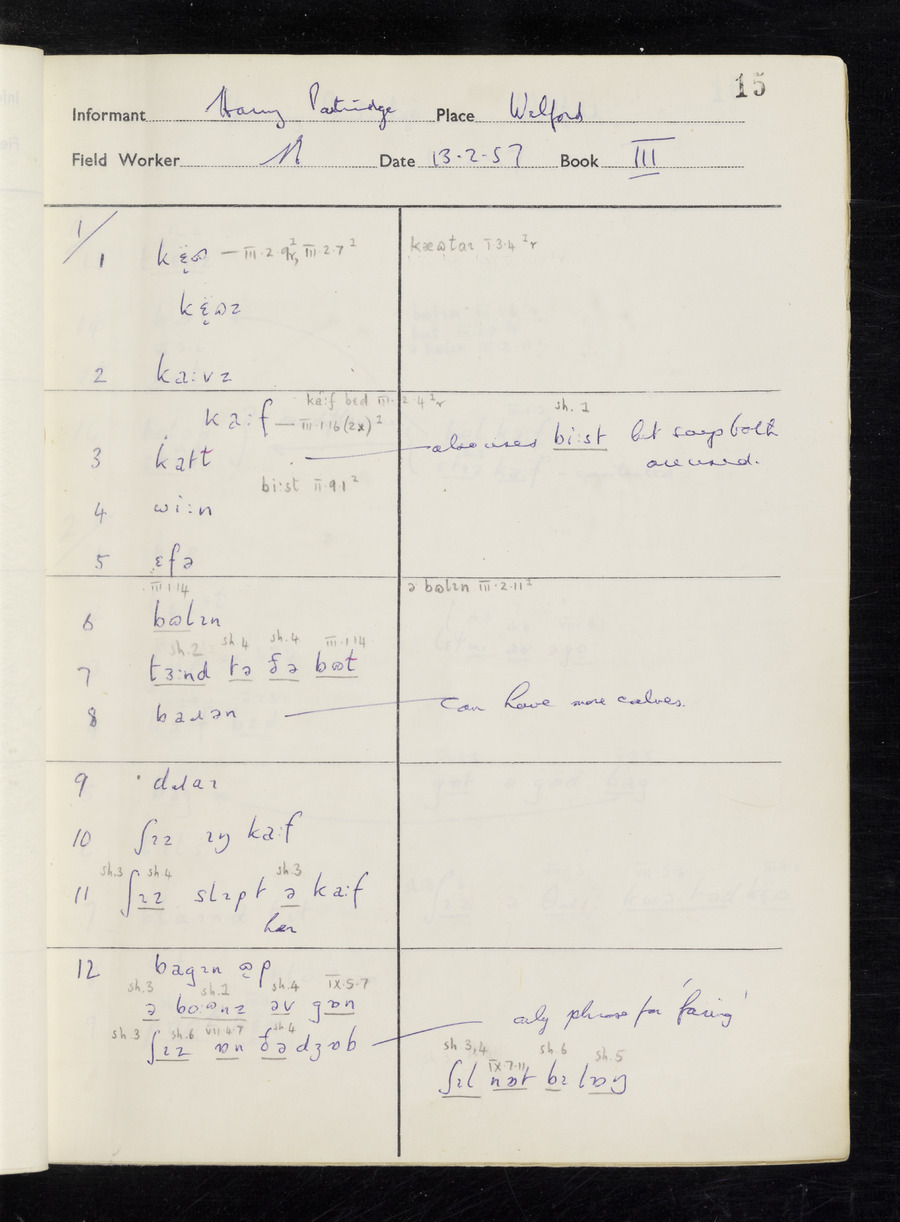 15
Informant Harry Partridge Place Welford
Field Worker Date 13·2·57 Book III
1/
1 kɛ̝ɷ — III·2·9 I r, III·2·7 I kæɷtaɪ I·3·4 I r
kɛ̝ɷz
2 ka:vz
ka:f — III·1·16 (2x) I ka:f bɛd III·2·4 I r
sh. 1
3 katt also uses bi:st but says both
are used.
bi:st II·9·1 2
4 wi:n
5 ɛfə
III·1·14 ə bɷlɪn III·2·11 I
6 bɷlɪn
sh.2 sh.4 sh.4 III·1·14
7 tɜ:nd tə ðə bɷt
8 baɹən can have more calves.
9 dɹaɪ
10 ʃɪz ɪŋ ka:f
sh.3 sh.4 sh.3
11 ʃɪz slɪpt ə ka:f
her
12 bagɪn ɷp
sh.3 sh.1 sh.4 IX·5·7
ə bo:ənz əv gɒn only phrase for 'faring'
sh 3 sh.6 VII·4·7 sh 4
ʃɪz ɒn ðə dʒɒb
sh 3,4 IX·7·11 sh. 6 sh. 5
ʃɪl nɒt bɪ lɒŋ